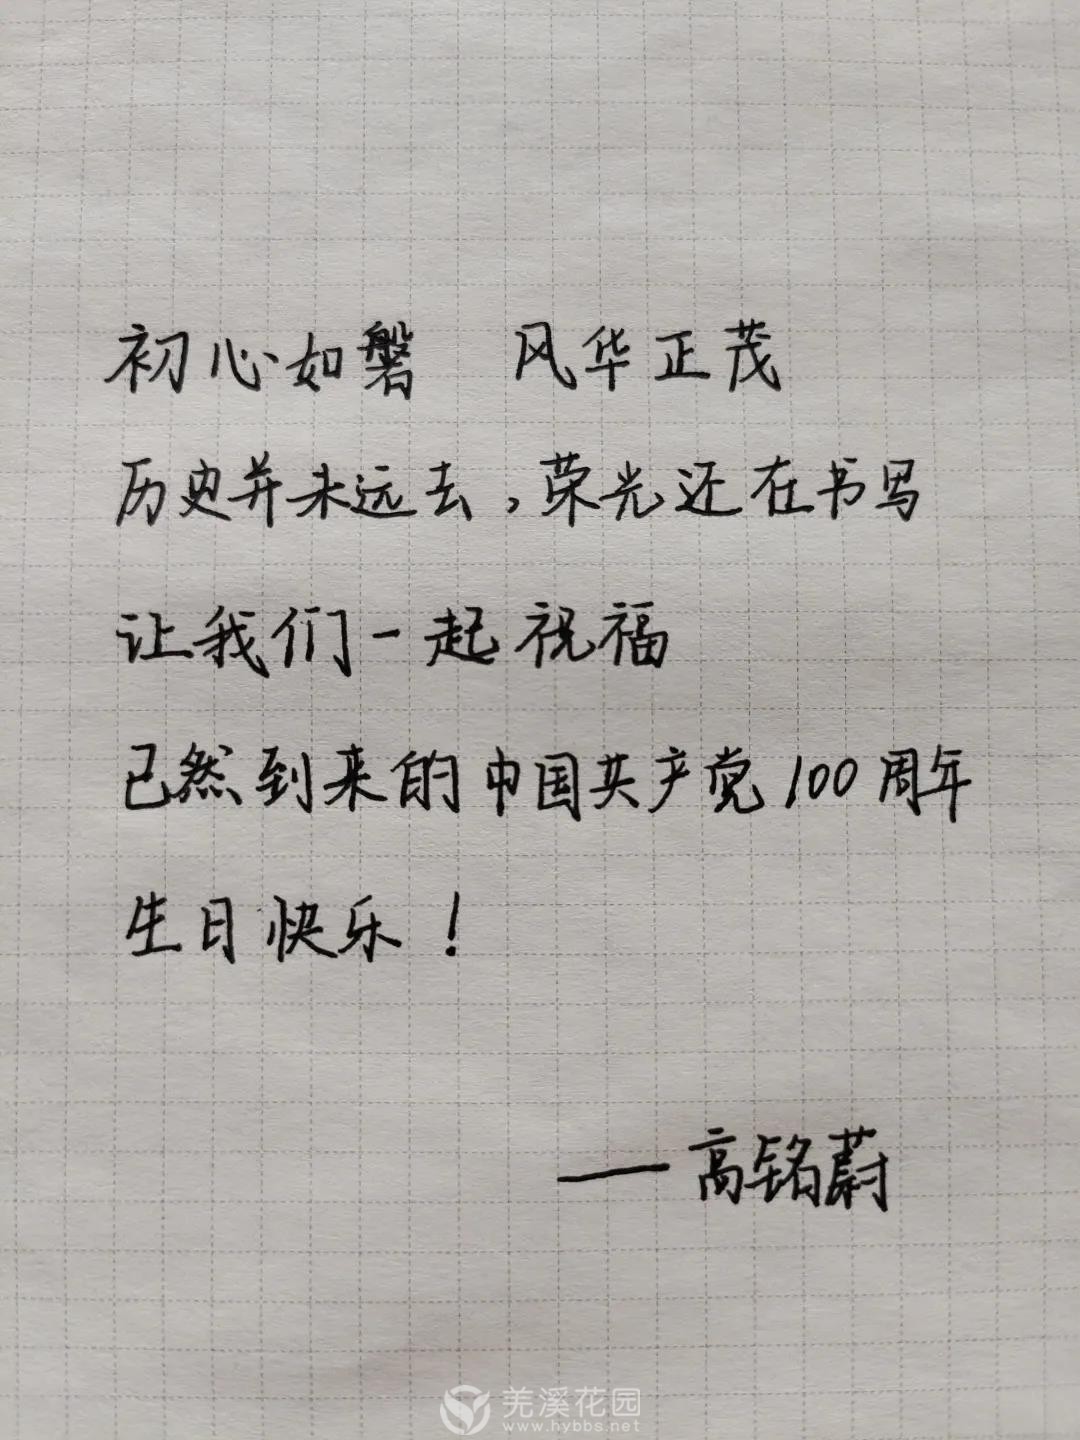 初心如磐 风华正茂
历史并未远去，荣光还在书写
让我们一起祝福
已然到来的中国共产党100周年
生日快乐！
——高铭蔚
羌溪花园
www.hybbs.net